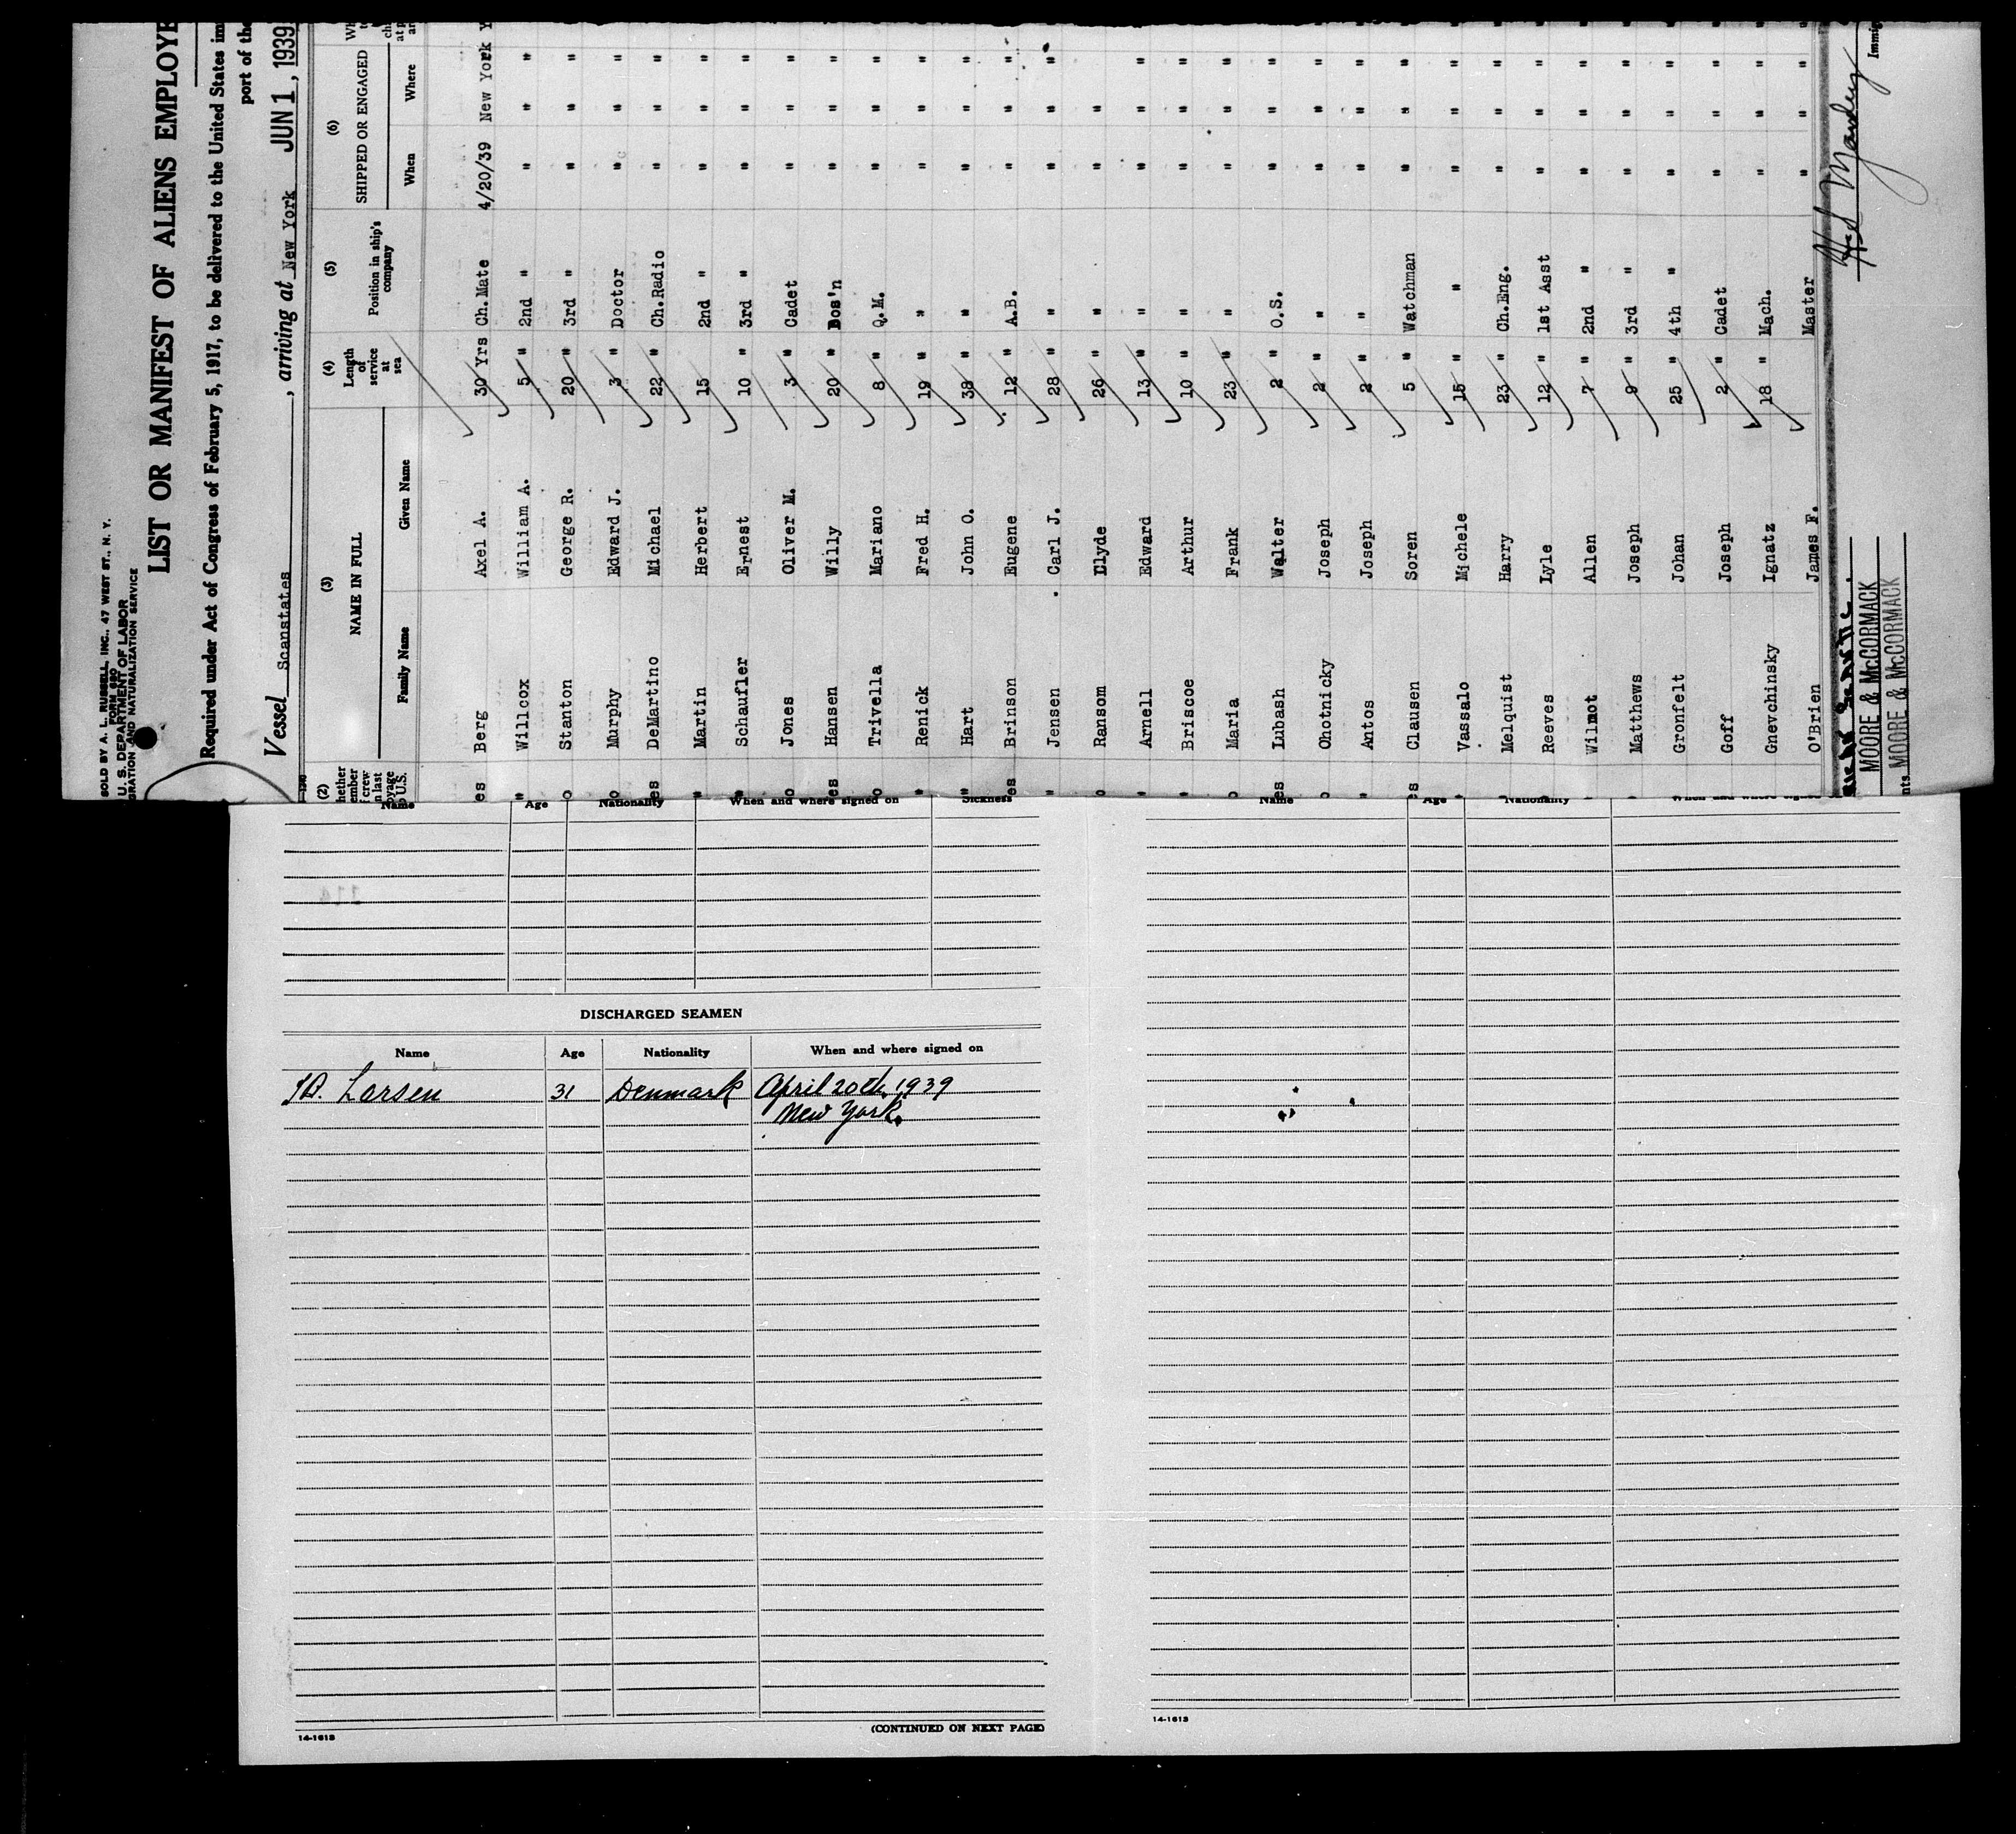 SOLD BY A. L. RUSSELL, INC., 47 WEST ST., N. Y.
FORM 680
U. S. DEPARTMENT OF LABOR
GRATION AND NATURALIZATION SERVICE
LIST OR MANIFEST OF ALIENS EMPLOYE
Required under Act of Congress of February 5, 1917, to be delivered to the United States im
port of the
Vessel Scanstates, arriving at New York JUN 1, 1939
(2) (3) (4) (5) (6)
hether ember f crew n last oyage o U.S. NAME IN FULL Length of service at sea Position in ship's company SHIPPED OR ENGAGED
Family Name Given Name When Where
es Berg Axel A. 30 Yrs Ch.Mate 4/20/39 New York Y
" Willcox William A. 5 " 2nd " " " "
o Stanton George R. 20 " 3rd " " " "
o Murphy Edward J. 3 " Doctor " " "
es DeMartino Michael 22 " Ch.Radio " " "
" Martin Herbert 15 2nd " " " "
" Schaufler Ernest 10 " 3rd " " " "
o Jones Oliver M. 3 " Cadet " " "
es Hansen Willy 20 " Bos'n " " "
o Trivella Mariano 8 " Q.M. " " "
" Renick Fred H. 19 " " " " "
" Hart John O. 38 " " " " "
es Brinson Eugene 12 " A.B. " " "
" Jensen Carl J. 28 " " " " "
o Ransom Clyde 26 " " " "
" Arnell Edward 13 " " " " "
" Briscoe Arthur 10 " " " " "
o Maria Frank 23 " " " "
es Lubash Walter 2 " O.S. " " "
o Ohotnicky Joseph 2 " " " " "
" Antos Joseph 2 " " " " "
es Clausen Soren 5 " Watchman " " "
" Vassalo Michele 15 " " " " "
" Melquist Harry 23 " Ch.Eng. " " "
" Reeves Lyle 12 " 1st Asst " " "
" Wilmot Allen 7 " 2nd " " " "
" Matthews Joseph 9 " 3rd " " " "
" Gronfelt Johan 25 " 4th " " " "
" Goff Joseph 2 " Cadet " " "
" Gnevchinsky Ignatz 18 " Mach. " " "
O'Brien James F. Master " " "
MOORE & McCORMACK
MOORE & McCORMACK
nts
Immig
Name Age Nationality When and where signed on Sickness
Name Age Nationality When and where signed
DISCHARGED SEAMEN
Name Age Nationality When and where signed on
Larsen 31 Denmark April 20th, 1939
New York.
(CONTINUED ON NEXT PAGE)
14-1613
14-1613